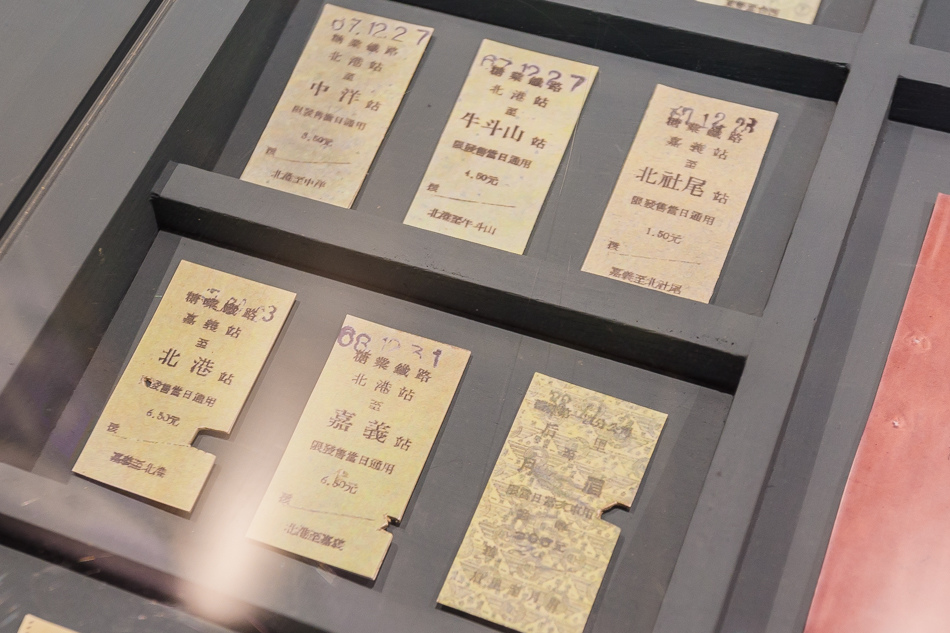 67.12.27
糖業鐵路
北港站
至
中洋站
限發售當日通用
3.50元
北港至中洋
67.12.27
糖業鐵路
北港站
至
牛斗山站
限發售當日通用
4.50元
北港至牛斗山
67.12.23
糖業鐵路
嘉義站
至
北社尾站
限發售當日通用
1.50元
嘉義至北社尾
糖業鐵路
嘉義站
至
北港站
限發售當日通用
6.50元
嘉義至北港
68.12.31
糖業鐵路
北港站
至
嘉義站
限發售當日通用
6.50元
北港至嘉義
后里
至
月眉